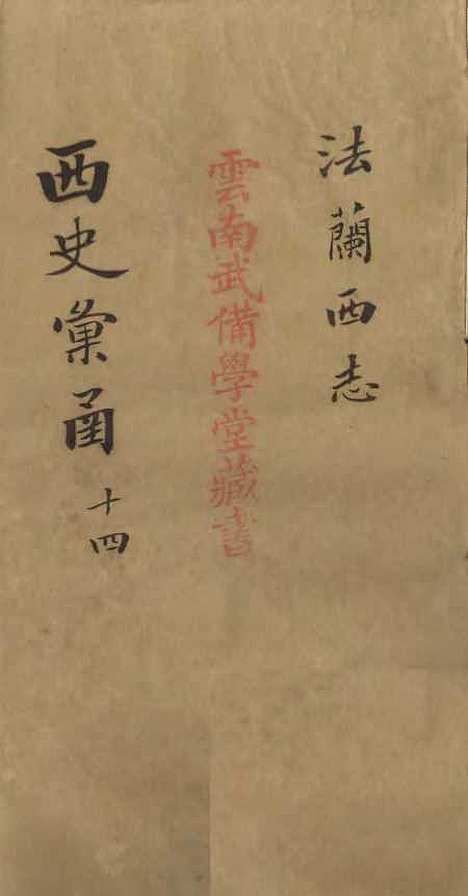 法蘭西志
雲南武備學堂藏書
西史彙函
十四